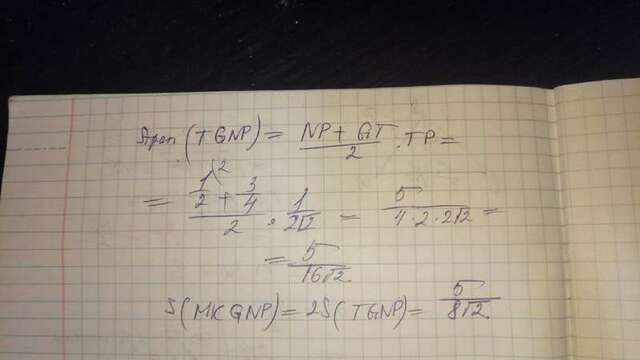 Sтрап (TGNP) = (NP + GT)/2 · TP =
= (1/2 + 3/4)/2 · 1/(2√2) = 5/(4·2·2√2) =
= 5/(16√2)
S(MKGNP) = 2S(TGNP) = 5/(8√2)